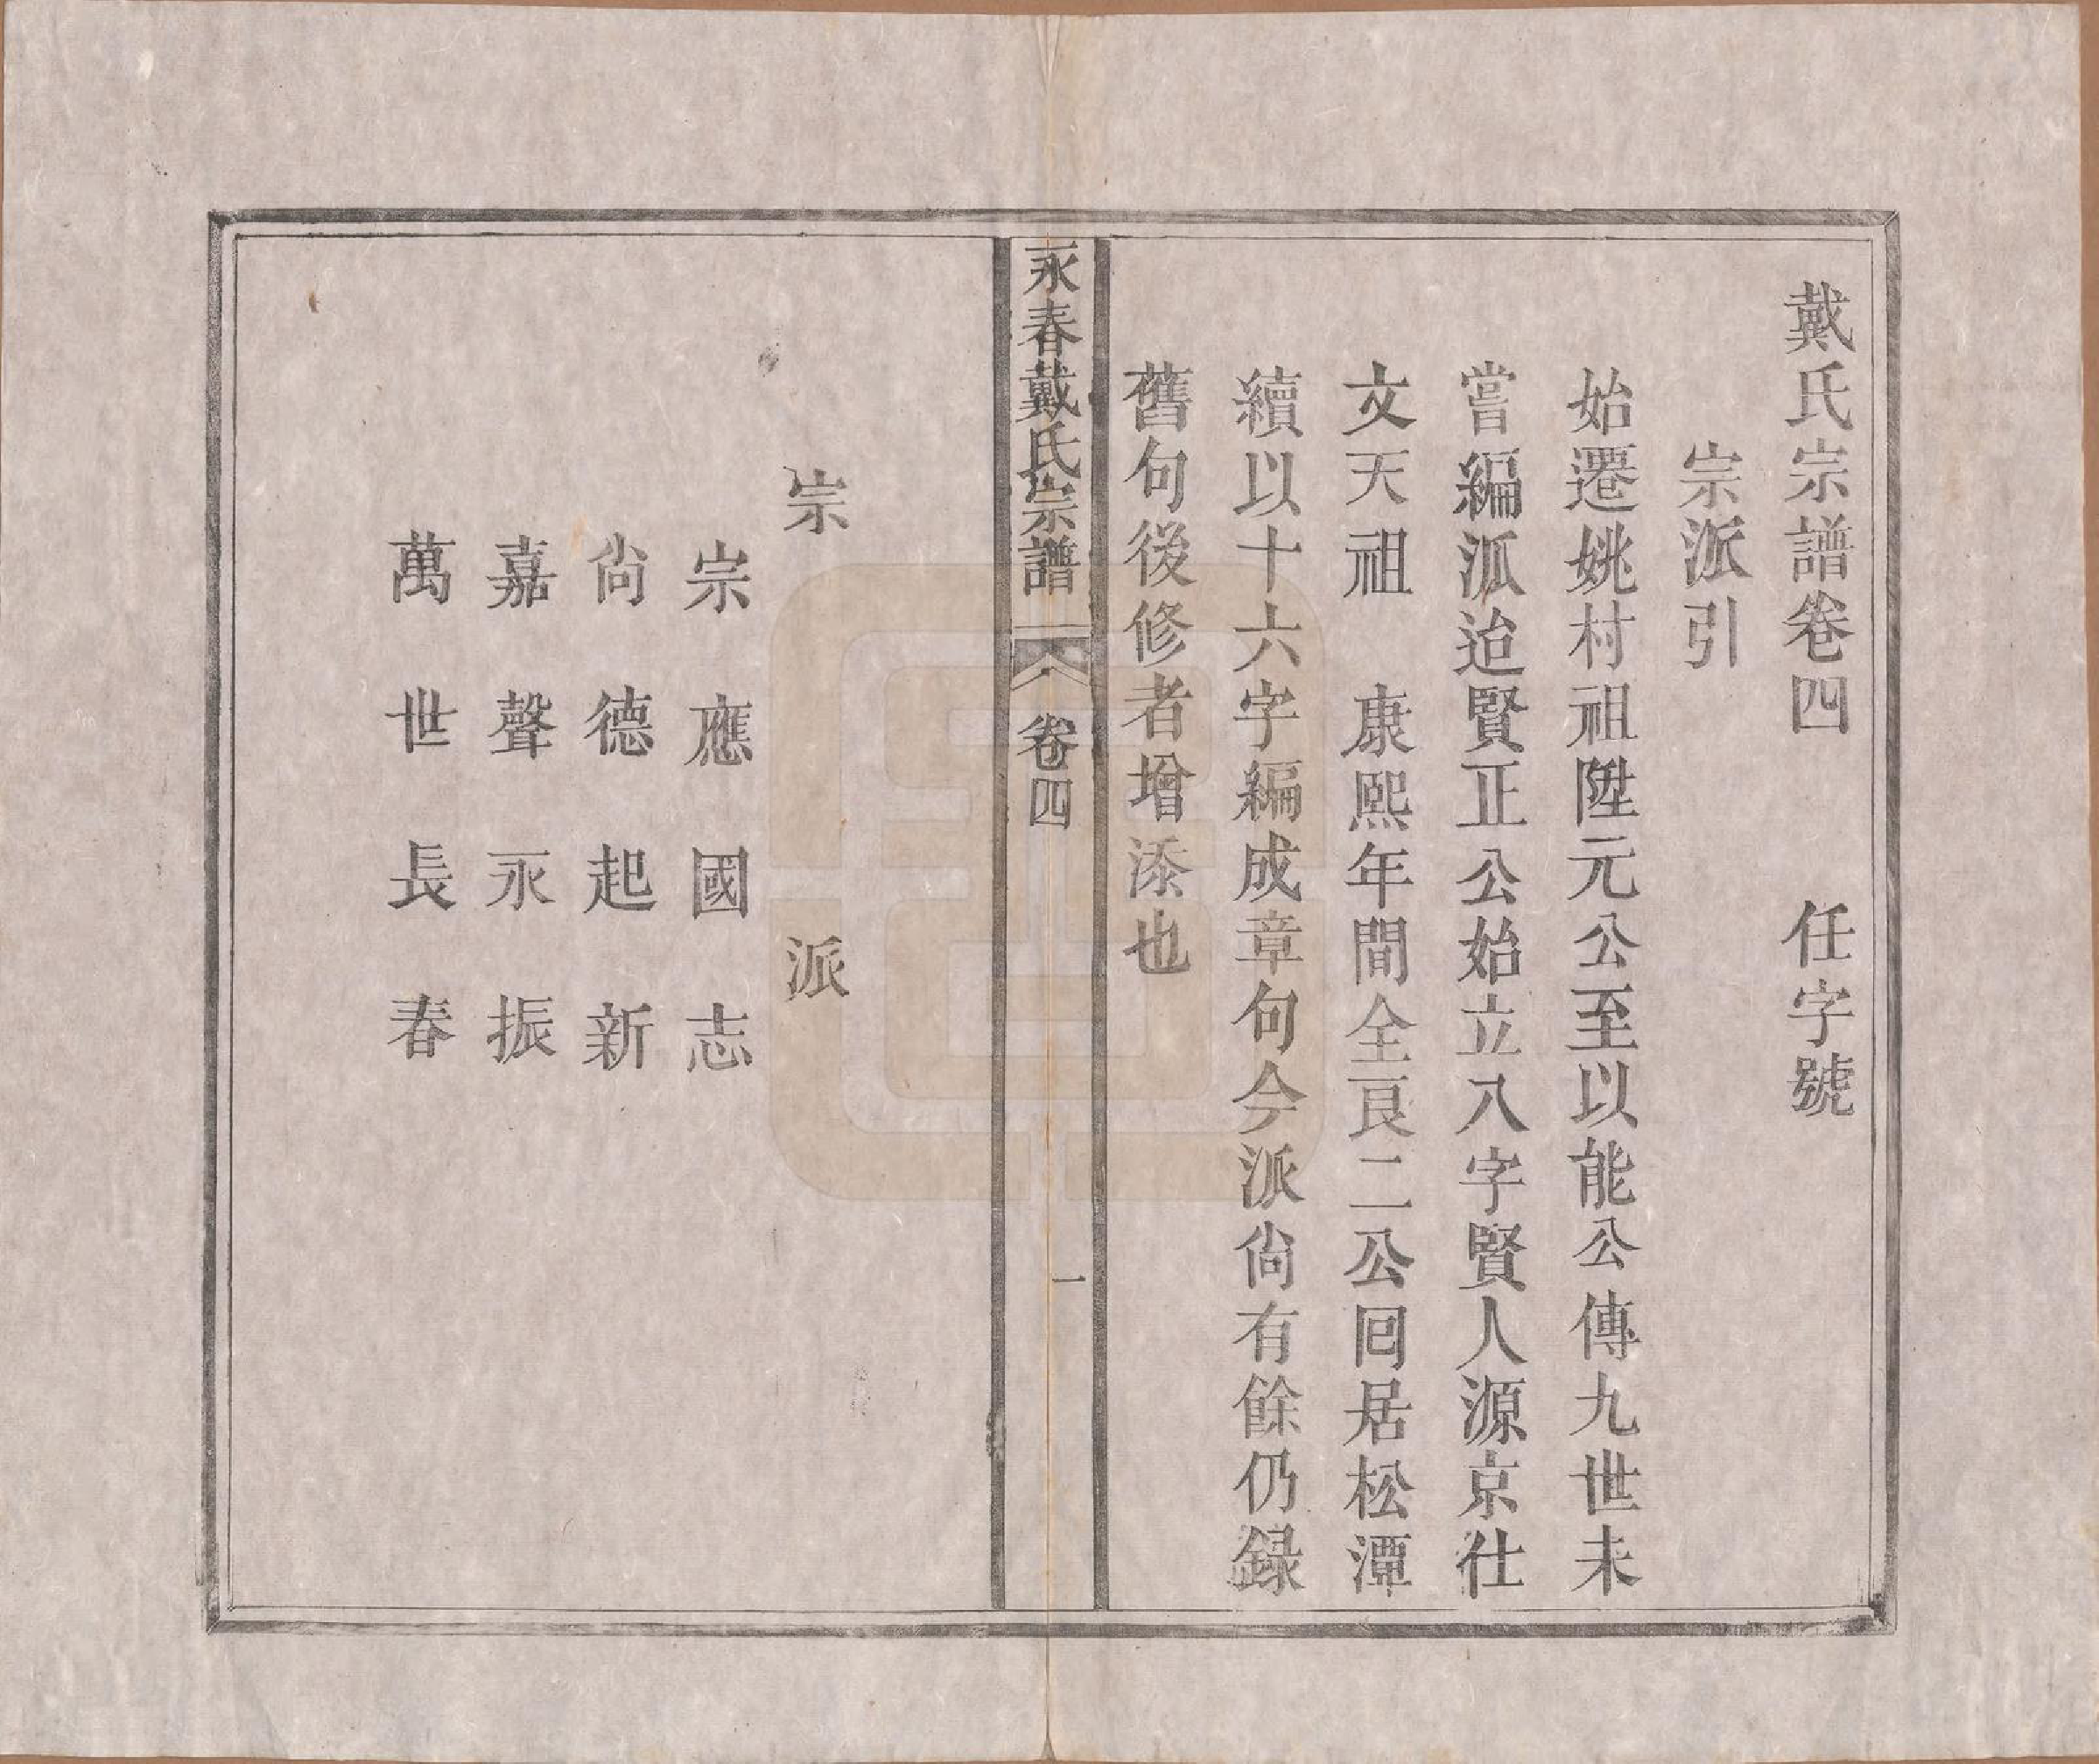 戴氏宗譜卷四　　任字號
宗派引
始遷姚村祖陞元公至以能公傳九世未
嘗編派迨賢正公始立八字賢人源京仕
文天祖　康熙年間全良二公同居松潭
續以十六字編成章句今派尙有餘仍録
舊句後修者增添也
永春戴氏宗譜　卷四　一
宗派
宗應國志
尙德起新
嘉聲永振
萬世長春